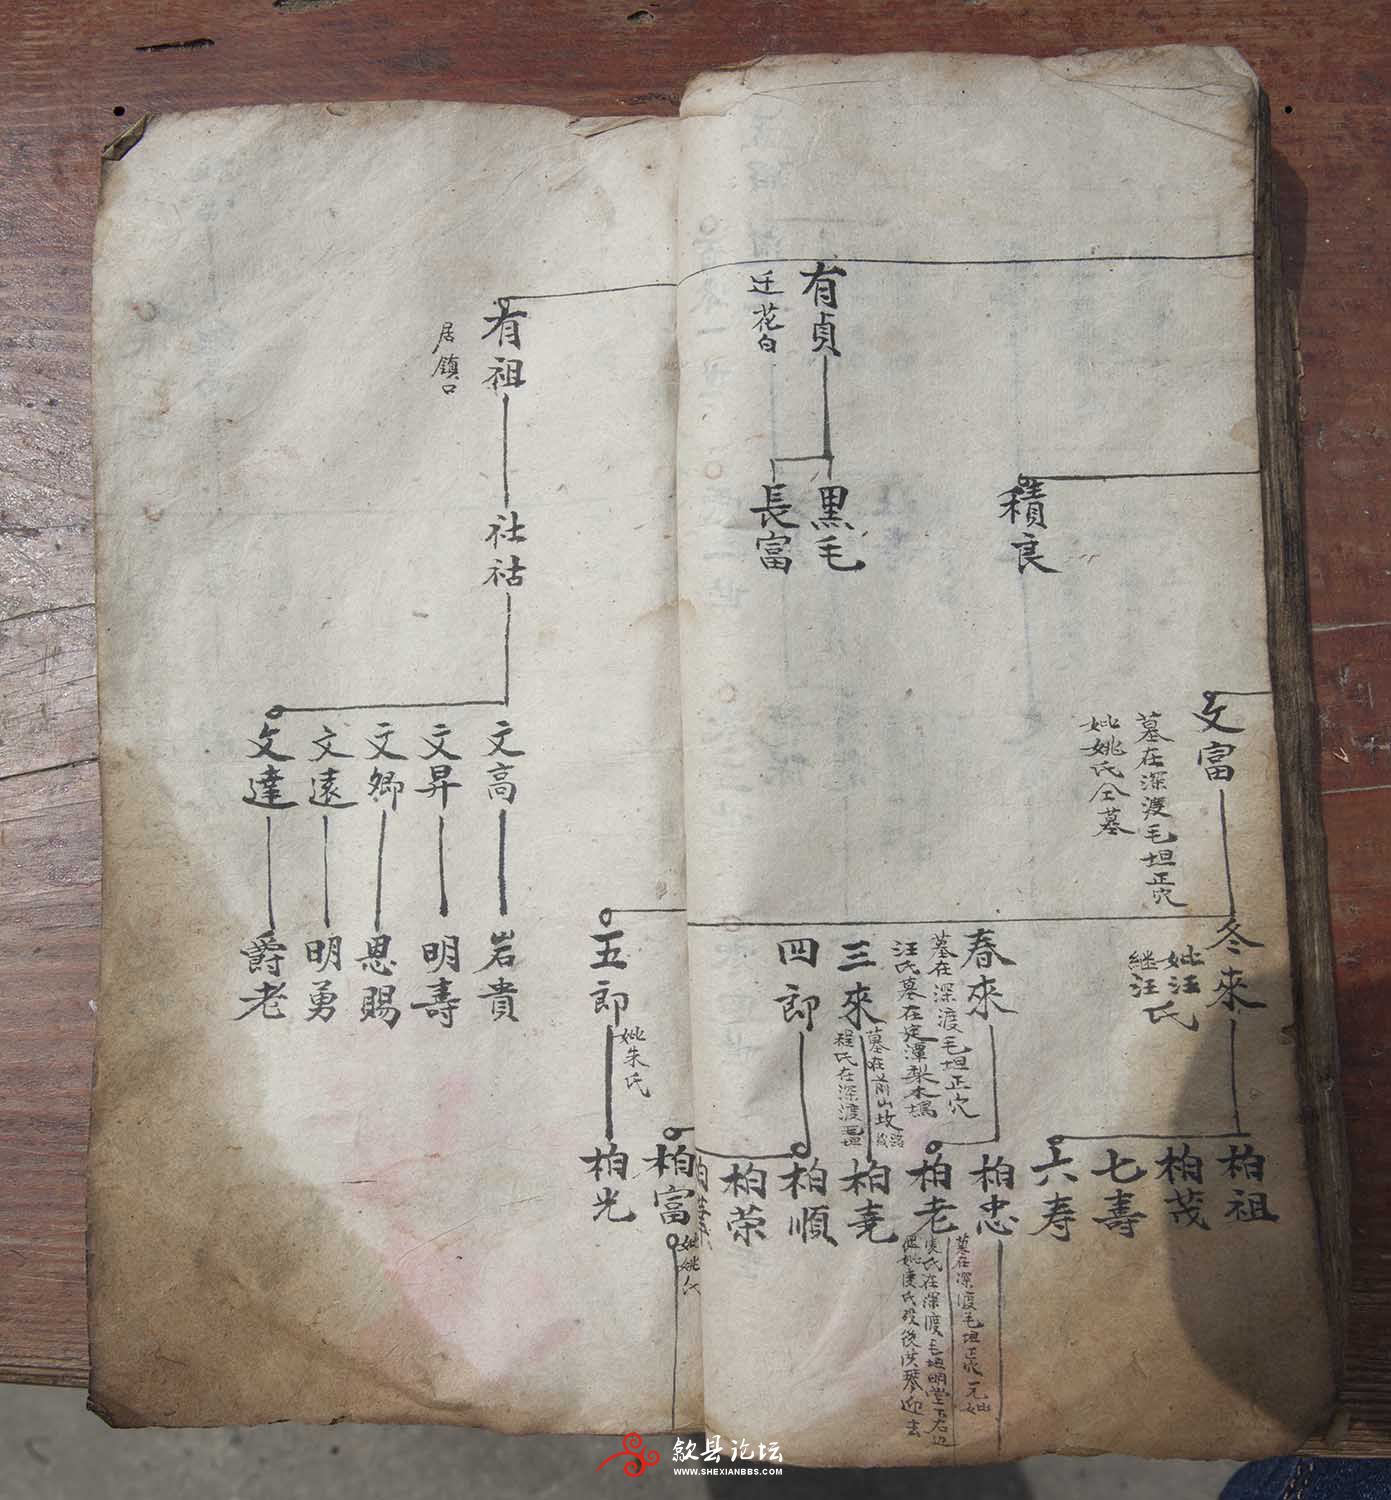 有貞
迁花白
黑毛
長富
積良
文富
墓在深渡毛坦正穴
妣姚氏仝墓
冬來
妣汪氏
継汪
春來
墓在深渡毛坦正穴
汪氏墓在定潭梨木塢
三來
墓在前山坟
程氏在深渡
四郎
柏祖
柏茂
七壽
六寿
柏忠
墓在深渡毛坦正穴元妣
柏老
氏在深渡毛坦明堂下右边
柏尭
柏順
柏荣
有祖
居鎮口
社祜
文高
文昇
文卿
文遠
文達
岩貴
明壽
恩賜
明勇
爵老
五郎
妣朱氏
柏富
妣姚氏
柏光
歙县论坛
WWW.SHEXIANBBS.COM